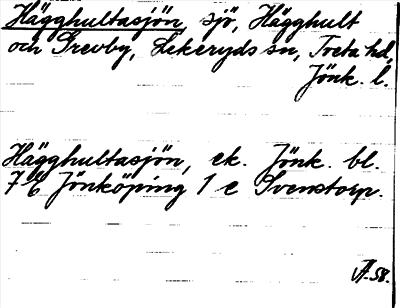 Hägghultasjön, sjö, Hägghult
och Grevby, Lekeryds sn, Tveta hd,
Jönk. l.
Hägghultasjön, ek. Jönk. bl.
7 Jönköping 1 e Svenstorp.
58.